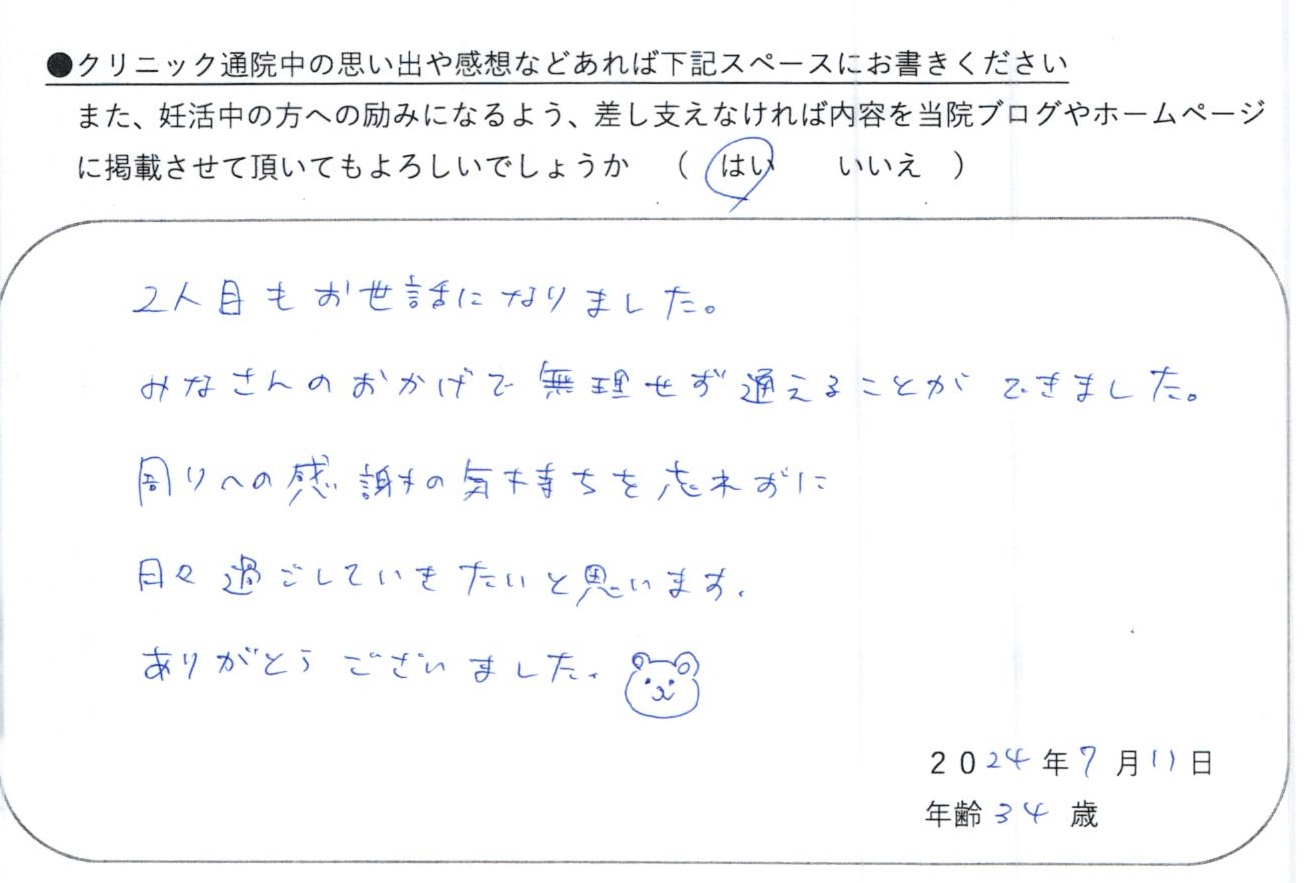 ●クリニック通院中の思い出や感想などあれば下記スペースにお書きください
また、妊活中の方への励みになるよう、差し支えなければ内容を当院ブログやホームページ
に掲載させて頂いてもよろしいでしょうか （ はい　いいえ ）
2人目もお世話になりました。
みなさんのおかげで無理せず通えることができました。
周りへの感謝の気持ちを忘れずに
日々過ごしていきたいと思います。
ありがとうございました。
2024年7月11日
年齢34歳